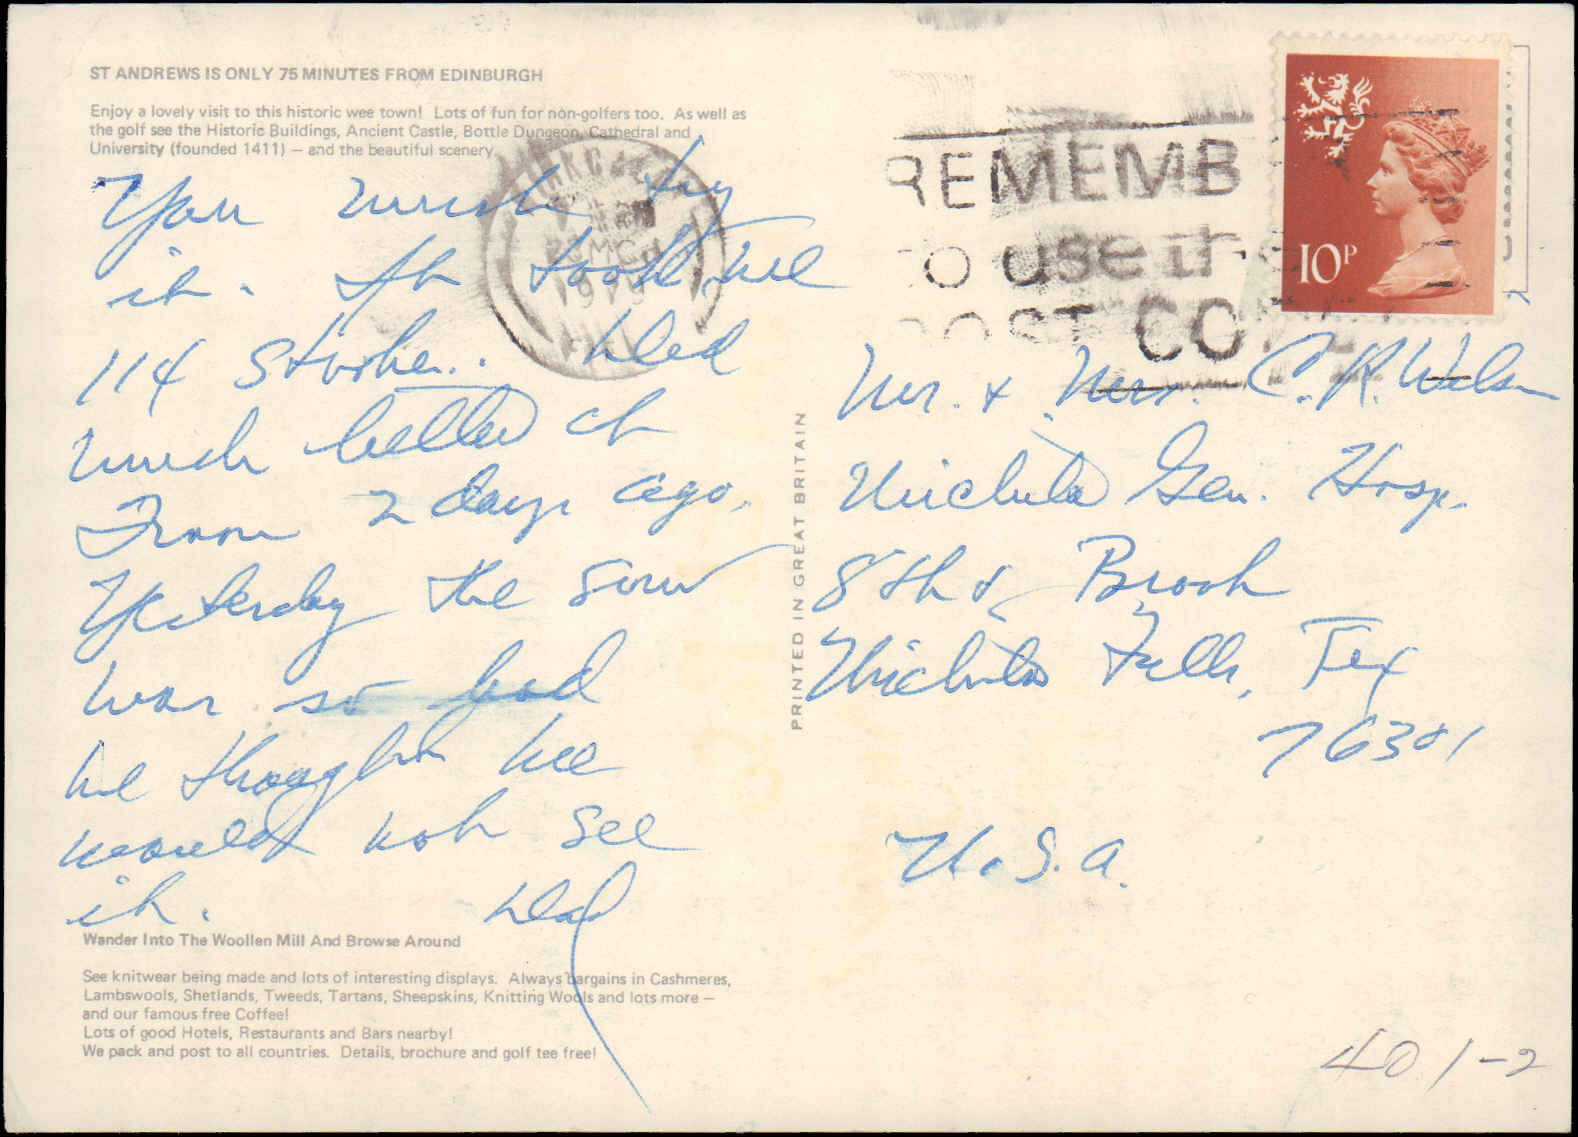 ST ANDREWS IS ONLY 75 MINUTES FROM EDINBURGH
Enjoy a lovely visit to this historic wee town! Lots of fun for non-golfers too. As well as
the golf see the Historic Buildings, Ancient Castle, Bottle Dungeon, Cathedral and
University (founded 1411) — and the beautiful scenery.
You must try
it. It took me
114 strokes.
much better
From 2 days ago.
Yesterday the snow
was so bad
we thought we
would not see
it. Dad
Wander Into The Woollen Mill And Browse Around
See knitwear being made and lots of interesting displays. Always bargains in Cashmeres,
Lambswools, Shetlands, Tweeds, Tartans, Sheepskins, Knitting Wools and lots more —
and our famous free Coffee!
Lots of good Hotels, Restaurants and Bars nearby!
We pack and post to all countries. Details, brochure and golf tee free!
PRINTED IN GREAT BRITAIN
REMEMB
to use the
POST CO
10P
Mr. + Mrs. C. R. Wilson
Wichita Gen. Hosp.
8th & Brook
Wichita Falls, Tex
76301
U.S.A.
401-2